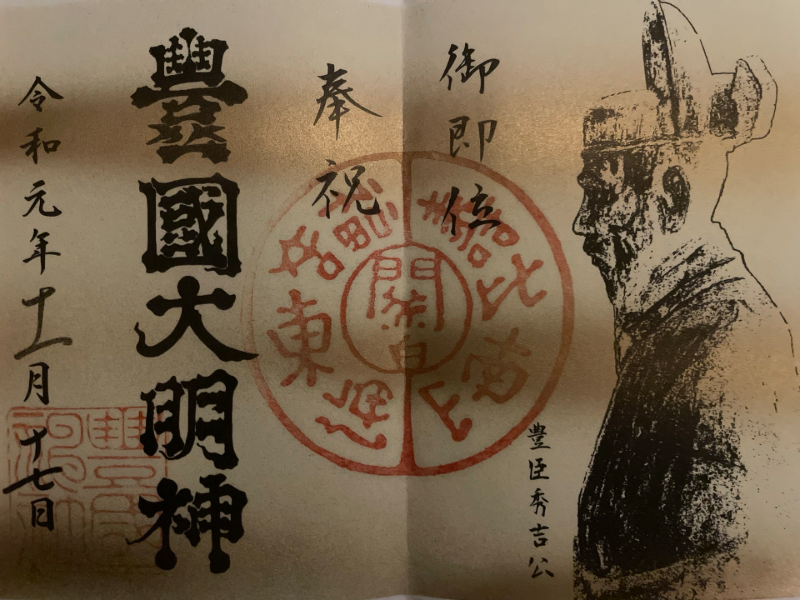 御即位
奉祝
豐國大明神
令和元年十一月十七日
豊臣秀吉公
關白